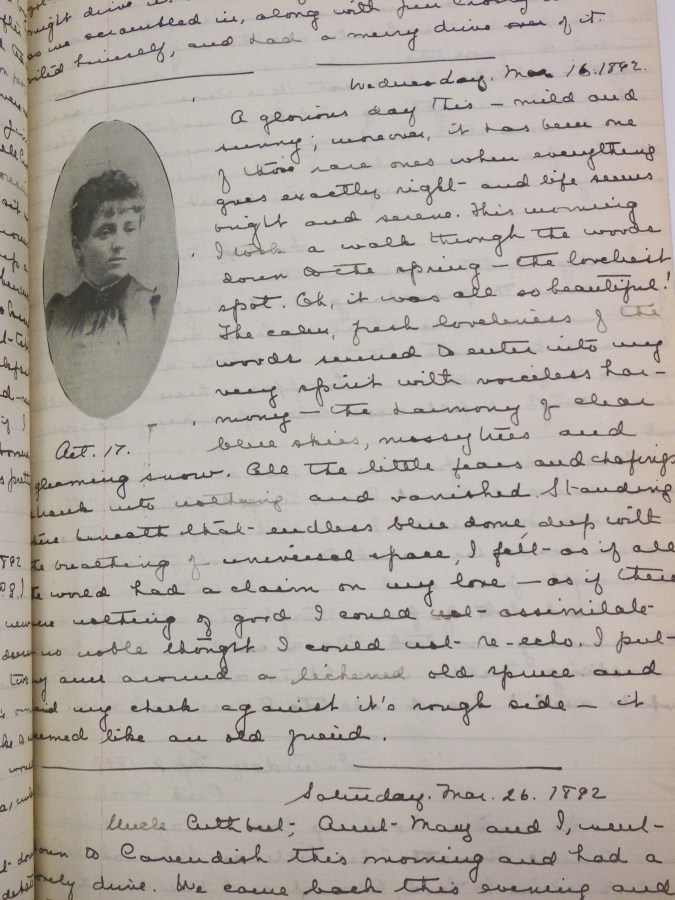 as we scrambled in, along with
himself, and had a merry drive over of it.
Wednesday. Mar 16. 1892.
A glorious day this – mild and
sunny; moreover, it has been one
of those rare ones when everything
goes exactly right – and life seems
bright and serene. This morning
I took a walk through the woods
down to the spring – the loveliest
spot. Oh, it was all so beautiful!
The calm, fresh loveliness of the
woods seemed to enter into my
very spirit with voiceless har-
mony – the harmony of clear
Aet. 17.
blue skies, mossy trees and
gleaming snow. All the little fears and chafings
shrank into nothing and vanished. Standing
there beneath that endless blue dome, deep with
the breathing of universal space, I felt as if all
the world had a claim on my love – as if there
were nothing of good I could not assimilate
no noble thought I could not re-echo. I put
my arm around a lichened old spruce and
laid my cheek against it's rough side – it
seemed like an old friend.
Saturday. Mar. 26. 1892
Uncle Cuthbert, Aunt Mary and I, went
down to Cavendish this morning and had a
lovely drive. We came back this evening and